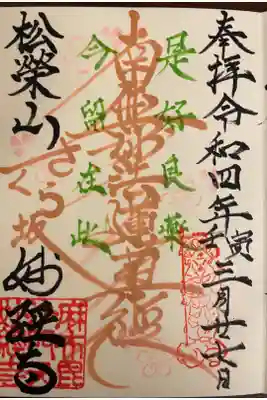 奉拝 令和四年壬寅三月廿七日
是好良薬
南無妙法蓮華経
今留在此
さくら坂
松榮山 妙経寺